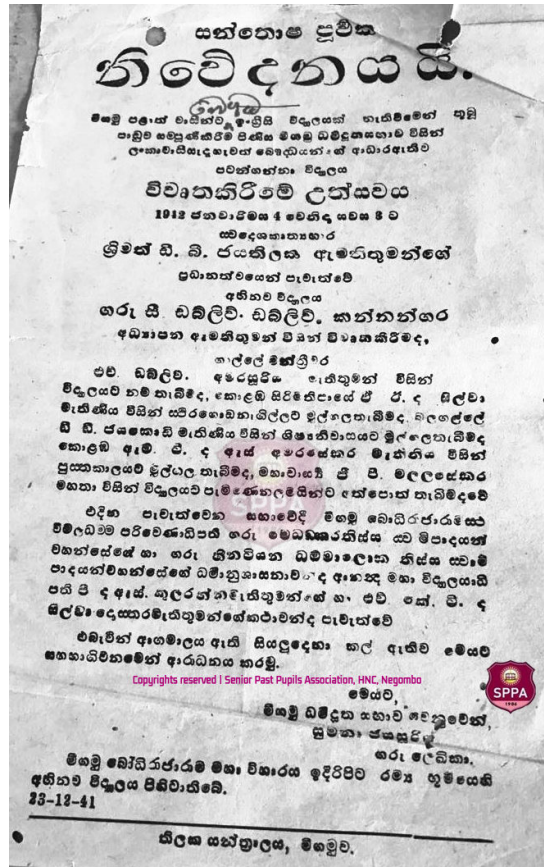 සන්තොෂ පූර්වක
නිවේදනයයි.
මීගමු පළාත් වාසීන්ට ඉංග්‍රීසි විද්‍යාලයක් නැතිවීමෙන් තුබූ
පාඩුව සම්පූර්ණකිරීම පිණිස මීගමු ධර්මදූතසභාව විසින්
ලංකාවාසීසැදැහැවත් බෞද්ධයන්ගේ ආධාරඇතිව
පටන්ගන්නා විද්‍යාලය
විවෘතකිරීමේ උත්සවය
1942 ජනවාරිමස 4 වෙනිදා සවස 3 ට
ස්වදේශකෘත්‍යභාර
ශ්‍රීමත් ඩී. බී. ජයතිලක ඇමතිතුමන්ගේ
ප්‍රධානත්වයෙන් පැවැත්වේ
අභිනව විද්‍යාලය
ගරු සී. ඩබ්ලිව්. ඩබ්ලිව්. කන්නන්ගර
අධ්‍යාපන ඇමතිතුමන් විසින් විවෘතකිරීමද,
ගාල්ලේ මන්ත්‍රීවර
එච්. ඩබ්ලිව්. අමරසූරිය මැතිතුමන් විසින්
විද්‍යාලයට නම තැබීමද, කොළඹ සිරිමතිපායේ ඒ. ඊ. ද සිල්වා
මැතිණිය විසින් ස්ථිරගොඩනැගිල්ලට මුල්ගලතැබීමද, බලගල්ලේ
ඩී. ඩී. ජයකොඩි මැතිණිය විසින් ශිෂ්‍යනිවාසයට මුල්ගලතැබීමද
කොළඹ ඇම්. ටී. ද ඇස් අමරසේකර මැතිණිය විසින්
පුස්තකාලයට මුල්ගල තැබීමද, මහාචාර්ය ජී. පී. මලලසේකර
මහතා විසින් විද්‍යාලයට පැමිණෙනළමයින්ට අත්පොත් තැබීමදවේ
එදින පැවැත්වෙන සභාවේදී මීගමු බෝධිරාජාරාමස්ථ
විමලධම්ම පරිවෙණාධිපති ගරු මේධඞ්කරතිස්ස ස්වාමිපාදයන්
වහන්සේගේ හා ගරු කිතවිමන ධම්මාලොක තිස්ස ස්වාමි
පාදයන්වහන්සේගේ ධර්මානුශාසනාවන්ද ආනන්ද මහා විද්‍යාලයාධි
පති පී ද ඇස්. කුලරත්නමැතිතුමන්ගේ හා එච්. කේ. ටී. ද
සිල්වා දොස්තරමැතිතුමන්ගේකථාවන්ද පැවැත්වේ
එබැවින් ආගමාලය ඇති සියලුදෙනා කල් ඇතිව මෙයට
සහභාගිවනමෙන් ආරාධනය කරමු.
Copyrights reserved | Senior Past Pupils Association, HNC, Negombo
SPPA
මෙයට,
මීගමු ධර්මදූත සභාව වෙනුවෙන්,
සුමනා ජයසූරිය
ගරු ලේඛිකා.
මීගමු බෝධිරාජාරාම මහා විහාරය ඉදිරිපිට රම්‍ය භූමියෙහි
අභිනව විද්‍යාලය පිහිටාතිබේ.
23-12-41
තිලක යන්ත්‍රාලය, මීගමුව.